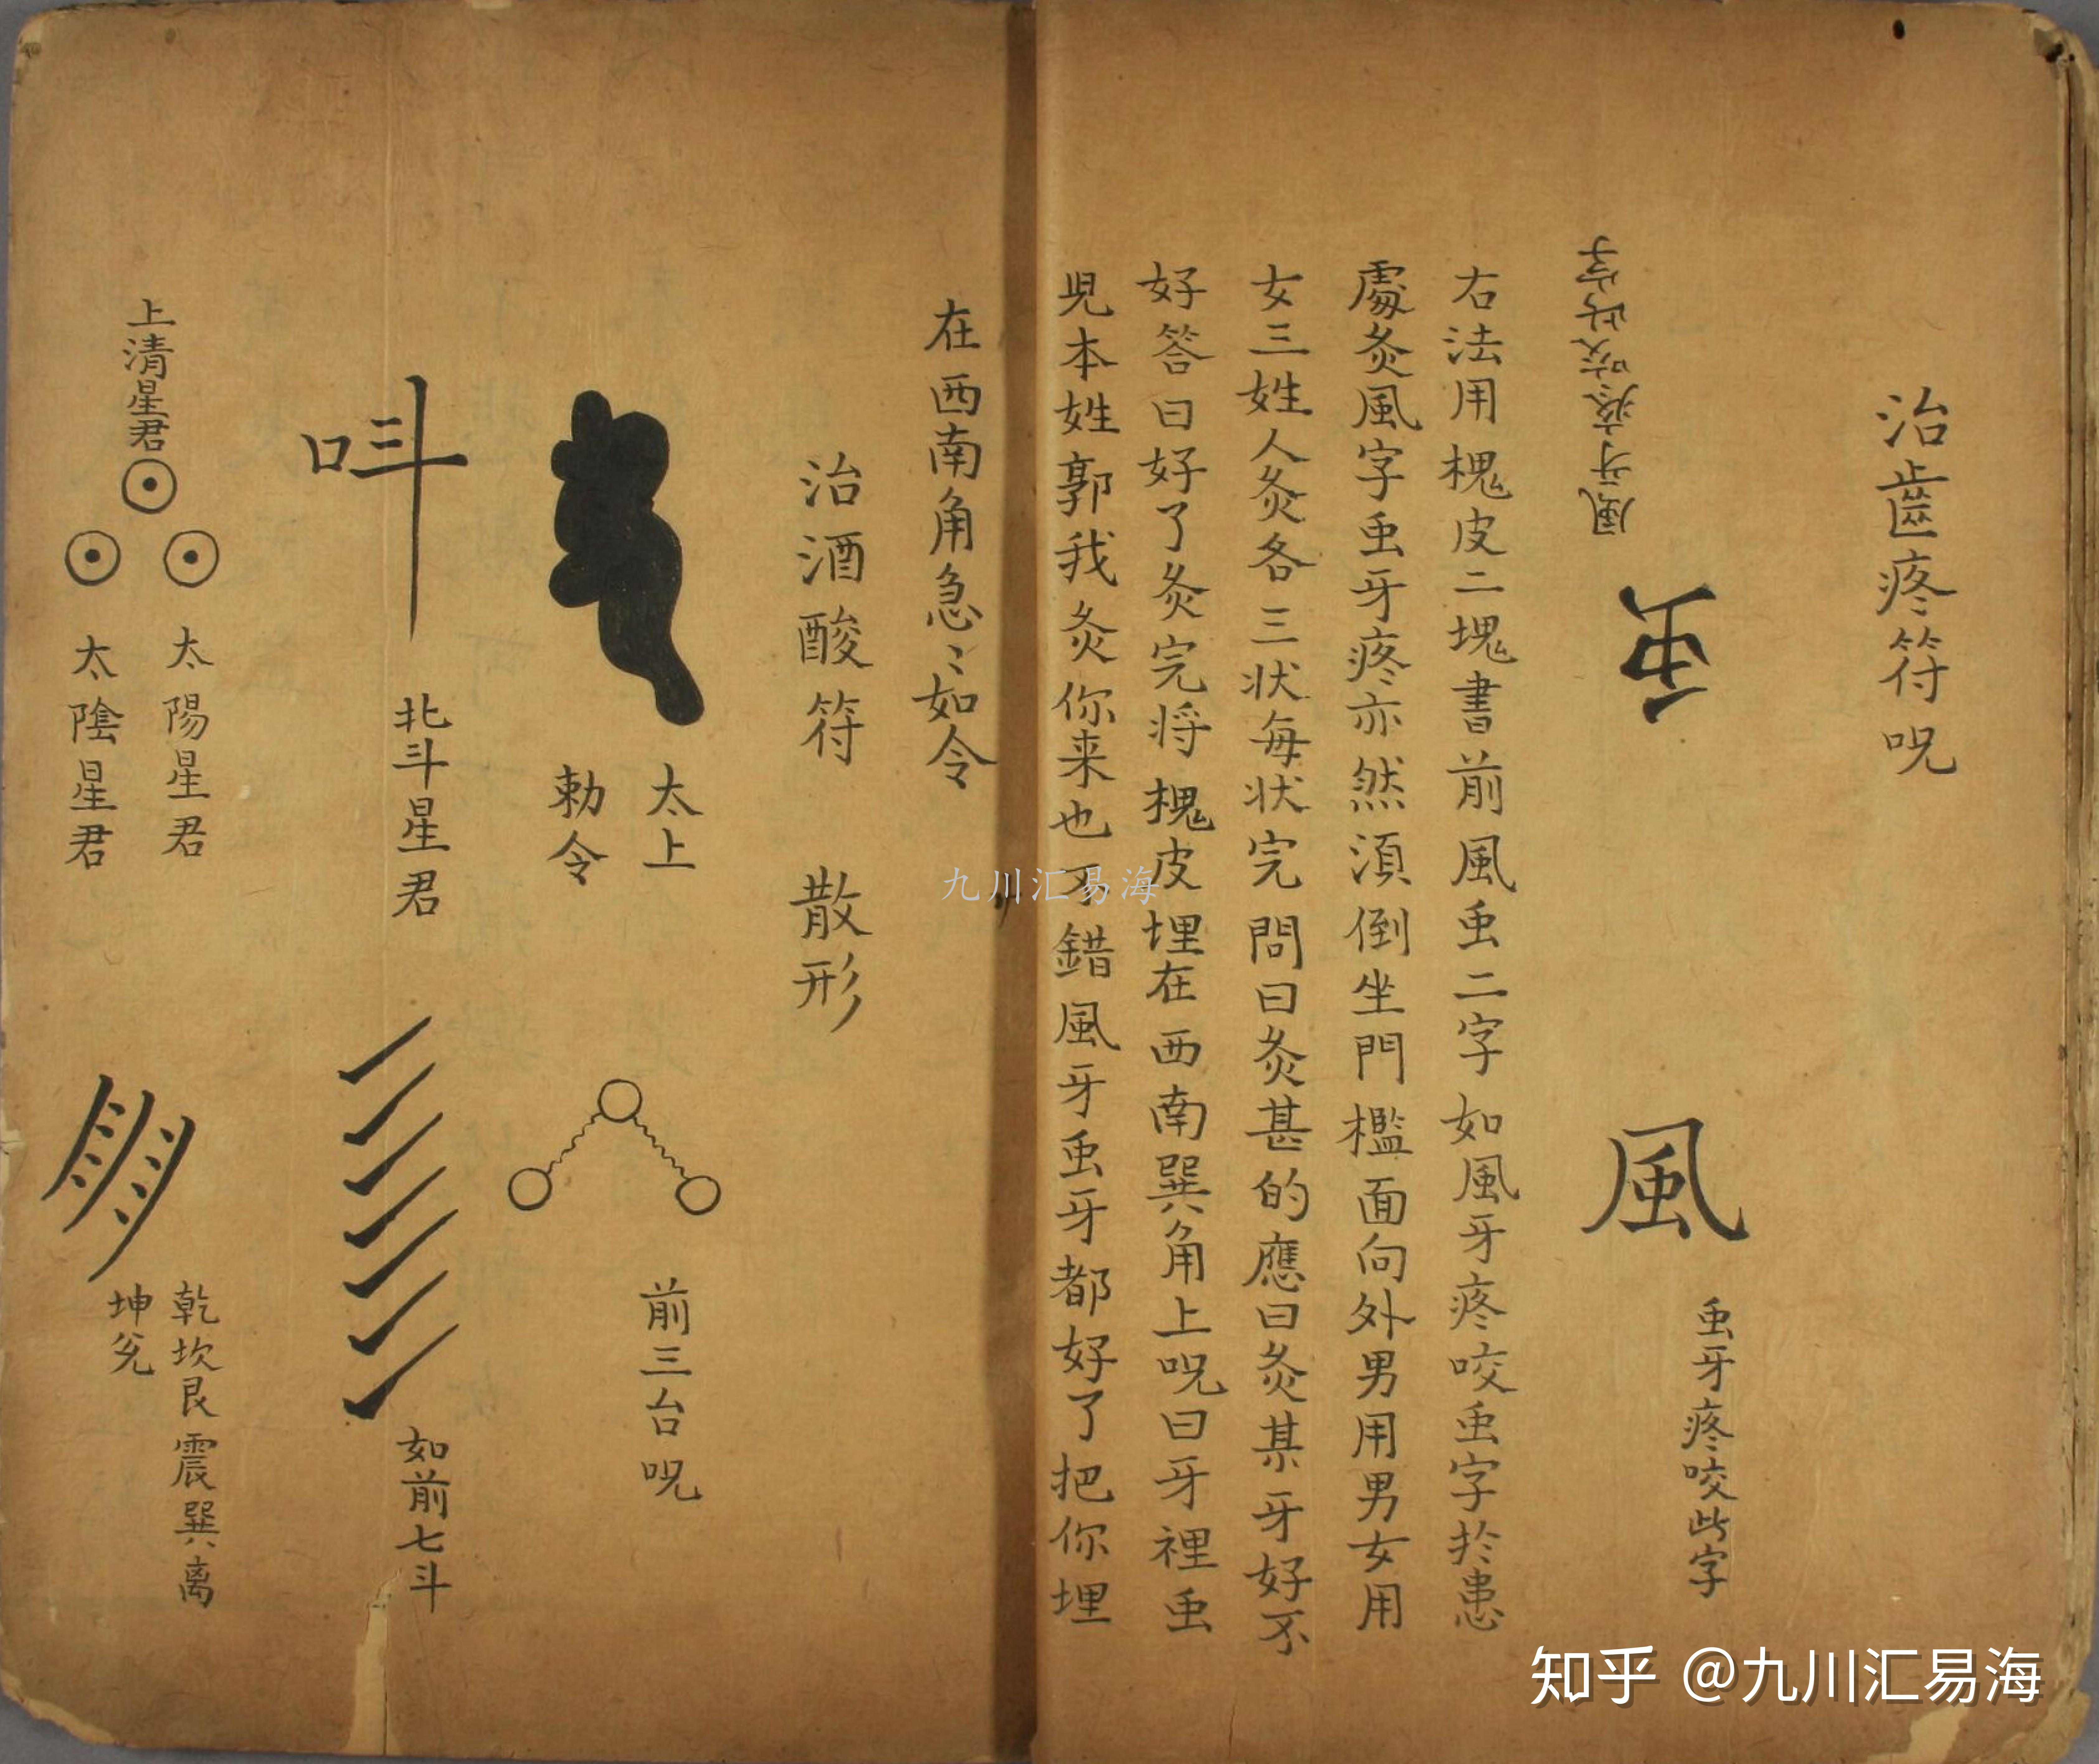 治齒疼符呪
風牙疼咬此字
虫
風
虫牙疼咬此字
右法用槐皮二塊書前風虫二字如風牙疼咬虫字扵患
處灸風字虫牙疼亦然湏倒坐門檻面向外男用男女用
女三姓人灸各三状每状完問曰灸甚的應曰灸某牙好不
好答曰好了灸完将槐皮埋在西南巽角上呪曰牙裡虫
児本姓郭我灸你来也不錯風牙虫牙都好了把你埋
在西南角急〻如令
治酒酸符 散形
太上
勅令
前三台呪
呌
北斗星君
如前七斗
上清星君
太陽星君
太陰星君
乾坎艮震巽离
坤兊
九川汇易海
知乎 @九川汇易海